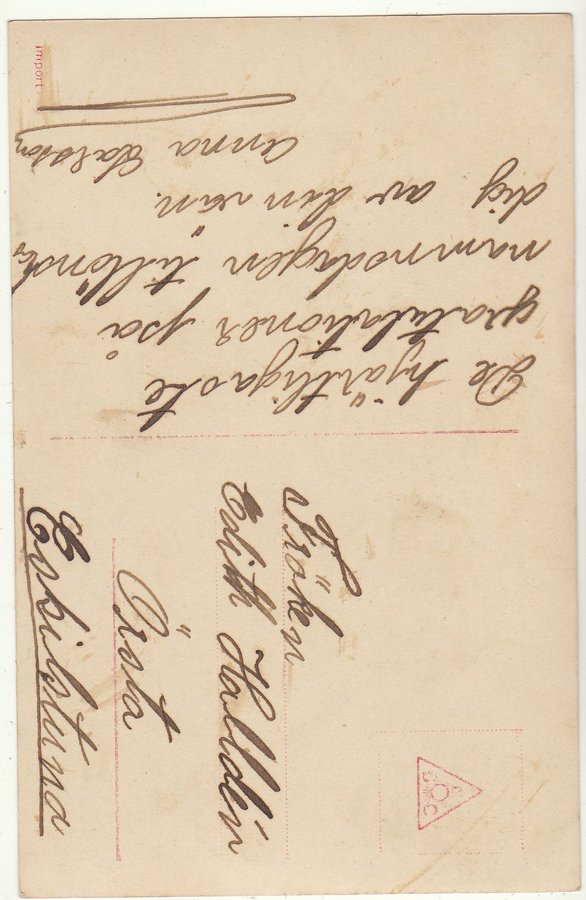 De hjärtligaste
gratulationer på
namnsdagen tillönskas
dig av din vän.
Anna
Fröken
Edith Halldén
Ärsta
Eskilstuna
Import